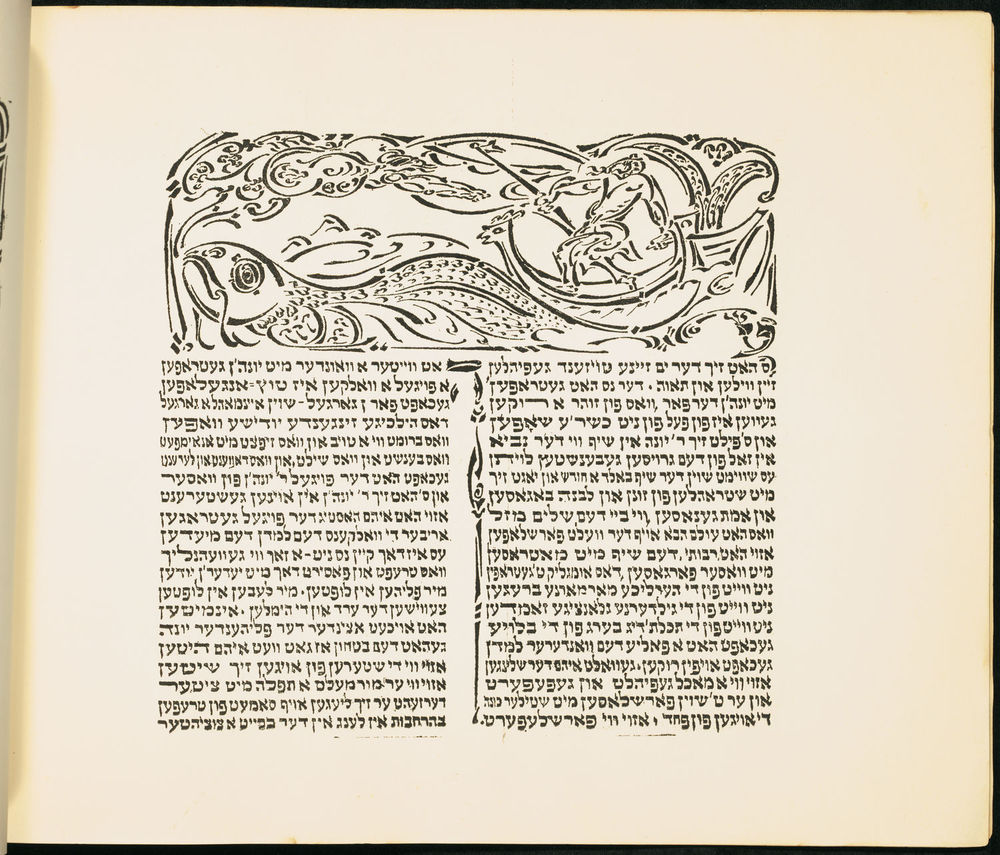 ס האט זיך דער ים זיינע טויזענד געפיהלען
זיין ווילען און תאוה. דער נס האט געטראפען
מיט יונה'ן דערפאר, וואס פון זוהר א רוקען
געווען איז פון פעל פון ניט כשר'ע שאפען
און ס'פילט זיך ר' יונה אין שיף ווי דער נביא
אין זאל פון דעם גרויסען געבענשטען לויתן
עס שווימט שוין, דער שיף באלד א חודש און יאגט זיך
מיט שטראהלען פון זונן און לבנה באגאסען
און אמת גענאסען, ווי ביי דעם, שלים מזל
וואס האט עולם הבא אויף דער וועלט פארשלאפען
אזוי האט, רבותי, דעם שיף מיט מאטראסען
מיט וואסער פארגאסען, דאס אומגליק ט'געטראפין
ניט ווייט פון די הערליכע מארמארנע ברעגען
ניט ווייט פון די גילדערנע גלאנציגע זאמדען
ניט ווייט פון די תכלת'דיג בערג פון די בלויע
געכאפט האט א פאליע דעם וואנדערער למדן
געכאפט אויפין רוקען, געוואלט איהם דער שלינגען
אזוי ווי א מאכל געפיהלט און געפעפערט
און ער ט'שוין פארשלאסען מיט שטילער כונה
די אויגען פון פחד, אזוי ווי פארשלעפערט.
אט ווייטער א וואונדער מיט יונה'ן געטראפען
א פויגעל א וואלקען איז טוץ=אנגעלאפען
געכאפט פאר'ן גארגעל-שוין איינמאהל א גארגעל
ראס הילכיגע זינגענדע יודישע וואפען
וואס ברומט ווי א טויב און, וואס זיפצט מיט אנאימפעט
וואס בענשט און וואס שילט, און וואס
געכאפט האט דער פויגעל ר' יונה'ן פון וואסער
און ס'האט זיך ר' יונה'ן אין אויגען געשטערענט
אזוי האט איהם האסטיג דער, פויגעל געטראגען
אריבער די וואלקענס דעם למדן דעם מיעדען
עס איז דאך קיין נס ניט-א זאך ווי געוועהנליך
וואס טרעפט און פאסירט דאך מיט יעדער'ן, יודען
מיר פליהען אין לופטען, מיר לעבען אין לופטען
צעווישען דער ערד און די הימלען, אינמיטען
האט אויכעט אצינדער דער פליהענדער יונה
געהאט דעם בטחון אז גאט וועט איהם היטען
אזוי ווי די שטערען פון אויגען זיך שיטען
אזוי ווי ער מורמעלט א תפלה מיט ציטער
דערזעהט ער זיך ליעגען אויף סאמעט פון טרעפען
בהרחבות אין לענג אין דער בבייט א צוציהטער